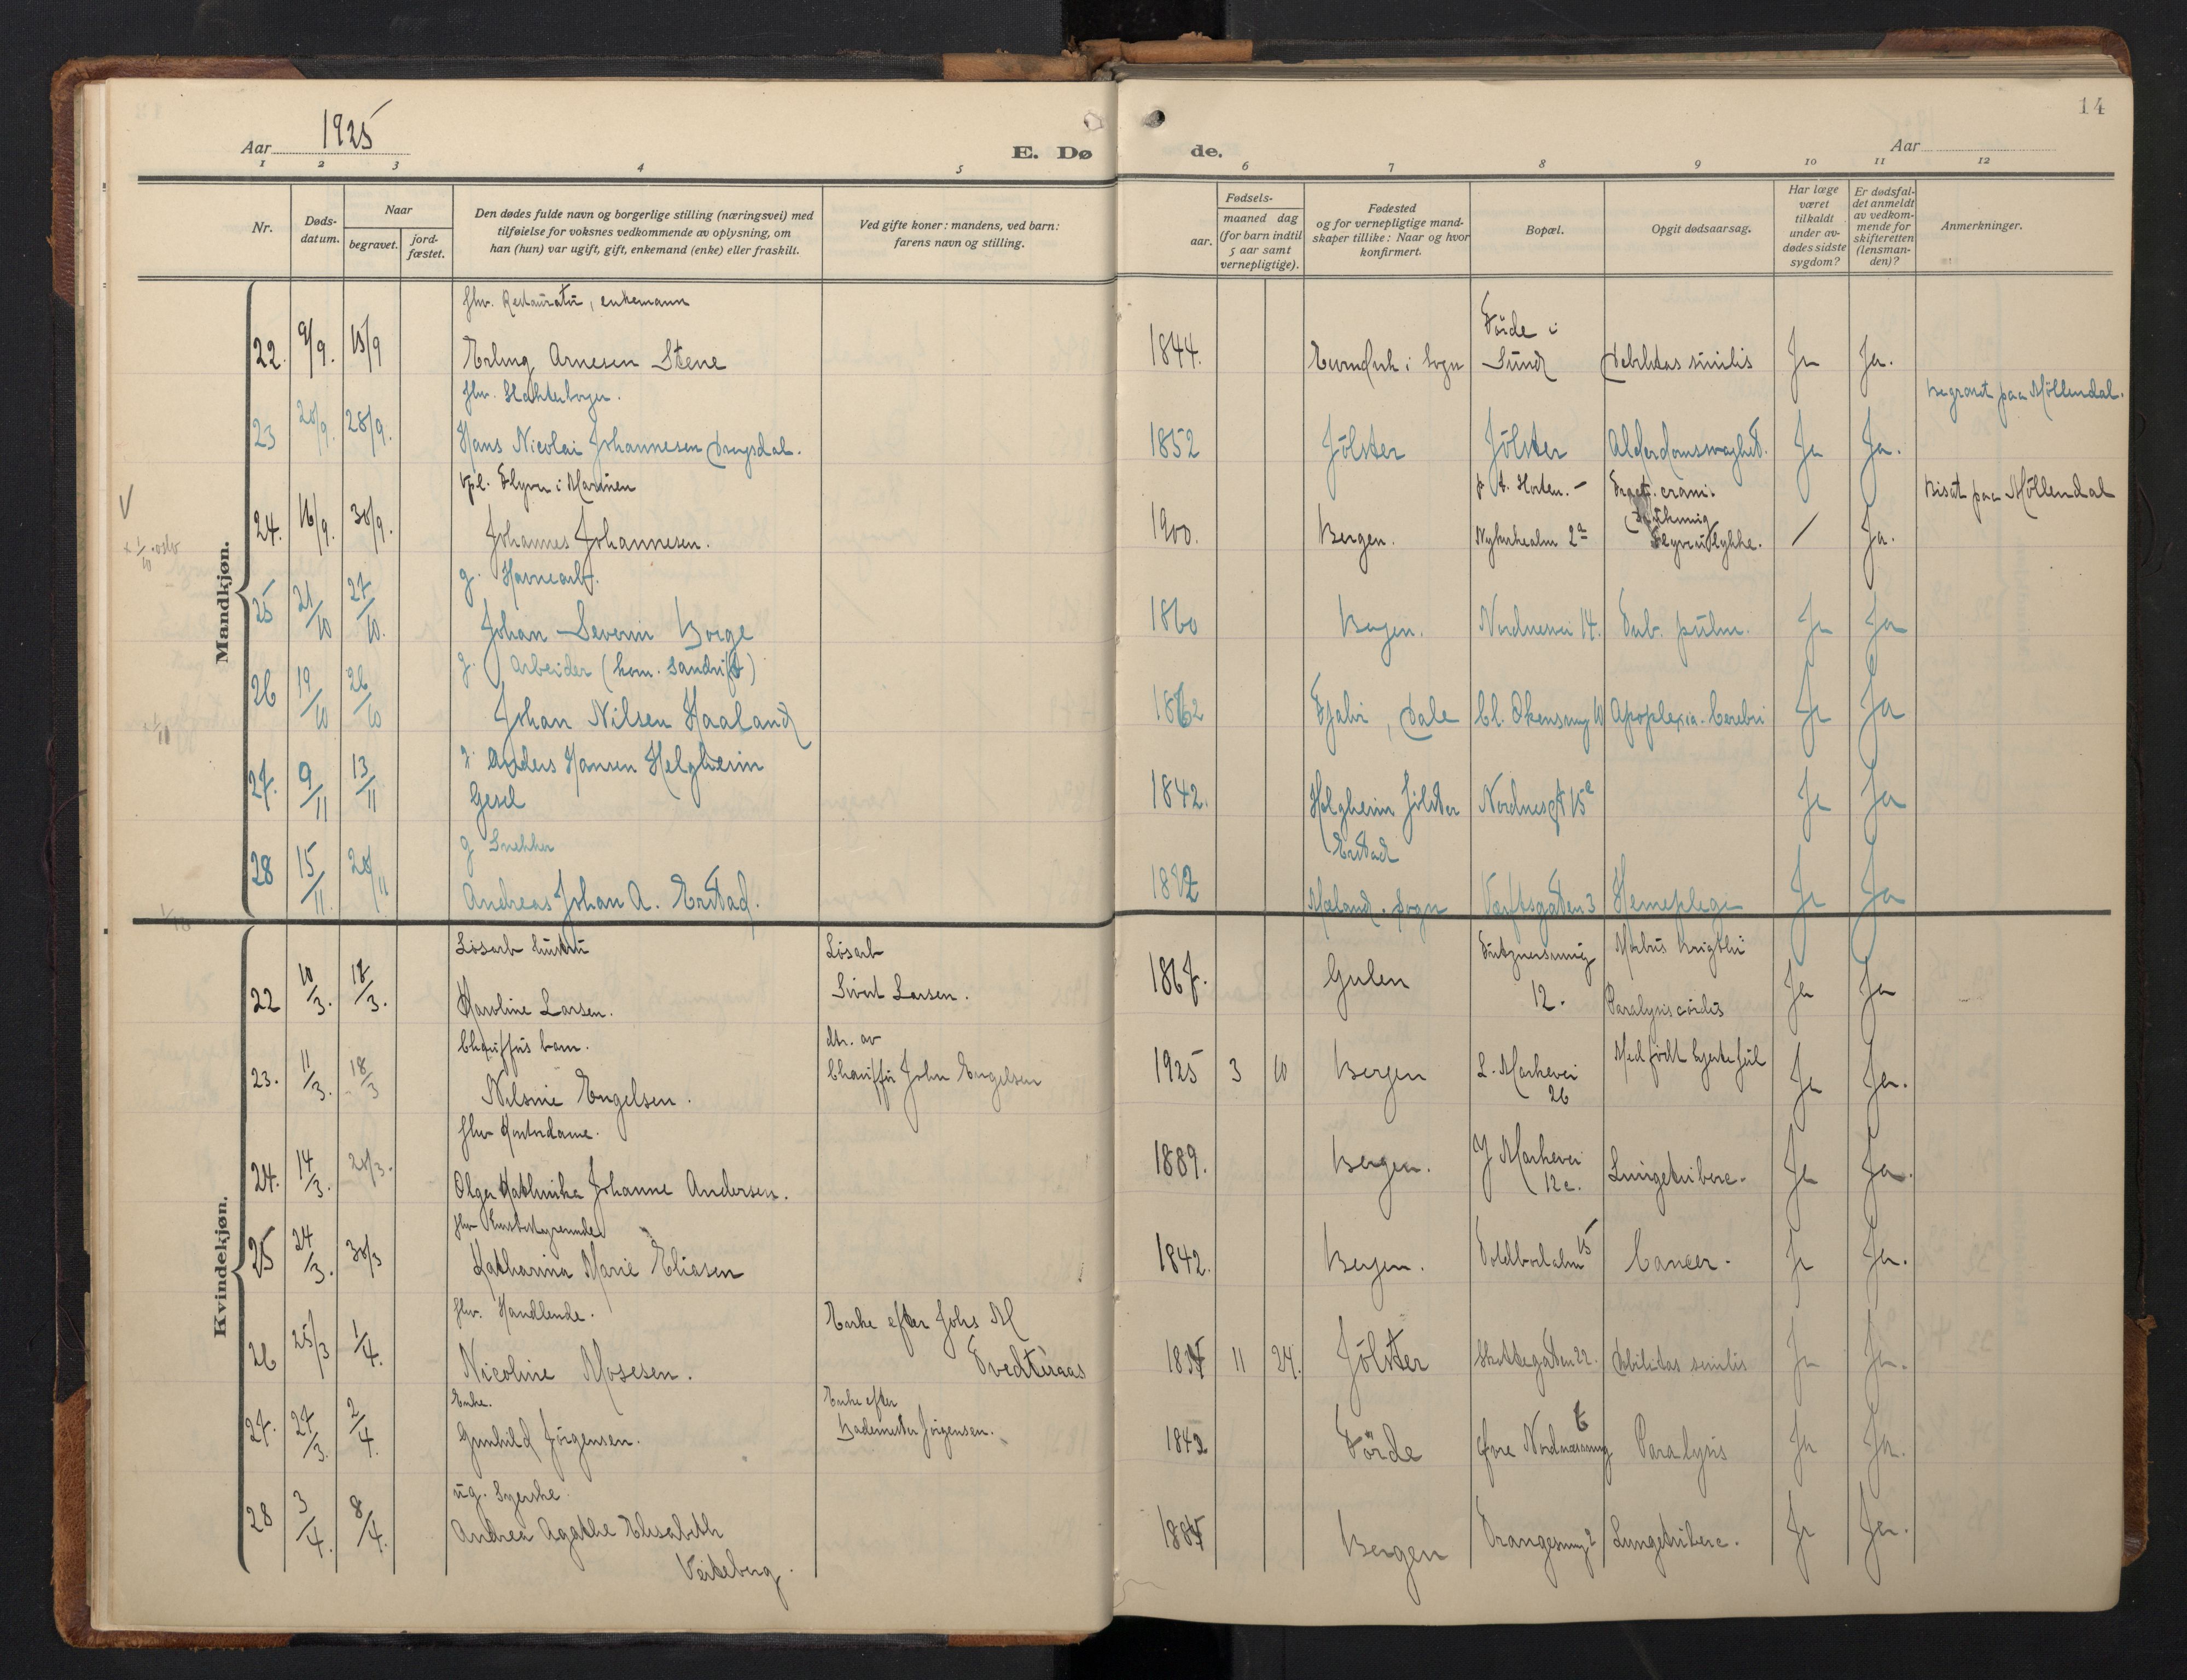 Aar 1925
E. Dø
1 2 3 4 5
Nr.
Døds-
datum.
Naar
begravet.
jord-
fæstet.
Den dødes fulde navn og borgerlige stilling (næringsvei) med
tilføielse for voksnes vedkommende av oplysning, om
han (hun) var ugift, gift, enkemand (enke) eller fraskilt.
Ved gifte koner: mandens, ved barn:
farens navn og stilling.
14
de.
Aar
6 7 8 9 10 11 12
aar.
Fødsels-
maaned dag
(for barn indtil
5 aar samt
vernepligtige).
Fødested
og for vernepligtige mand-
skaper tillike: Naar og hvor
konfirmert.
Bopæl.
Opgit dødsaarsag.
Har læge
været
tilkaldt
under av-
dødes sidste
sygdom?
Er dødsfal-
det anmeldt
av vedkom-
mende for
skifteretten
(lensman-
den)?
Anmerkninger.
Mandkjøn.
fhv. Restauratør, enkemann
22. 9/9. 15/9 Erling Arnesen Stene 1844. i Sogn Førde i Sund Debilitas senilis Ja Ja.
fhv. Begravet paa Møllendal.
23 20/9. 28/9. Hans Nicolai Johannesen 1852 Jölster Jölster Alderdomssvaghed. Ja Ja.
vpl. Flyver i Marinen p. t. Horten. Fract. cranii Biset paa Møllendal
24. 16/9. 30/9. Johannes Johannesen. 1900. Bergen. 2a Flyveulykke. / Ja.
g. Havnearb.
25 21/10 27/10. Johan Severin Borge 1860 Bergen. Nordnesvei 14. Tub. pulm. Ja Ja
g. Arbeider (kom. Sandrift)
26 19/10 26/10 Johan Nilsen Haaland 1862 Fjaler, Dale 10 Apoplexia Cerebri Ja Ja
27. 9/11 13/11 Anders Hansen Helgheim 1842. Helgheim Jölster Nordnesgt 15 Ja Ja
g Snekker Erstad
28 15/11. 20/11 Andreas Johan A. Erstad. Sogn Verftsgaten 3 Hemeplegi Ja Ja
Kvindekjøn.
Løsarb hustru Løsarb
22 10/3. 18/3. Karoline Larsen. Sivert Larsen. 1867. Gulen 12. Morbus Brigthii Paralysis cordis Ja Ja
Chaufførs barn. dtr. av
23. 11/3. 18/3 Nilsine Engelsen. Chauffør John Engelsen 1925 3 10 Bergen L. Markevei 26 Medfödt hjertefeil Ja Ja.
24. 14/3. 20/3. Olga Johanne Andersen. 1889. Bergen. Markevei 12c. Lungetuberc. Ja Ja.
fhv
25 24/3. 30/3 Katharina Marie Eliasen 1842. Bergen. 15 Cancer. Ja Ja.
fhv. Handlende. Enke efter Johs M
26 25/3 1/4. Nicoline Mosesen. Tvedteraas 11 24. Jölster 22. Debilitas senilis Ja Ja.
Enke. Enke efter
27. 27/3. 2/4. Gunhild Jörgensen. Bademester Jörgensen. 1842 Förde 6 Paralysis Ja Ja.
ug. Syerske
28 3/4. 8/4. Andrea Agathe Elisabeth Bergen 2 Lungetuberc. Ja Ja.
Veiteberg.